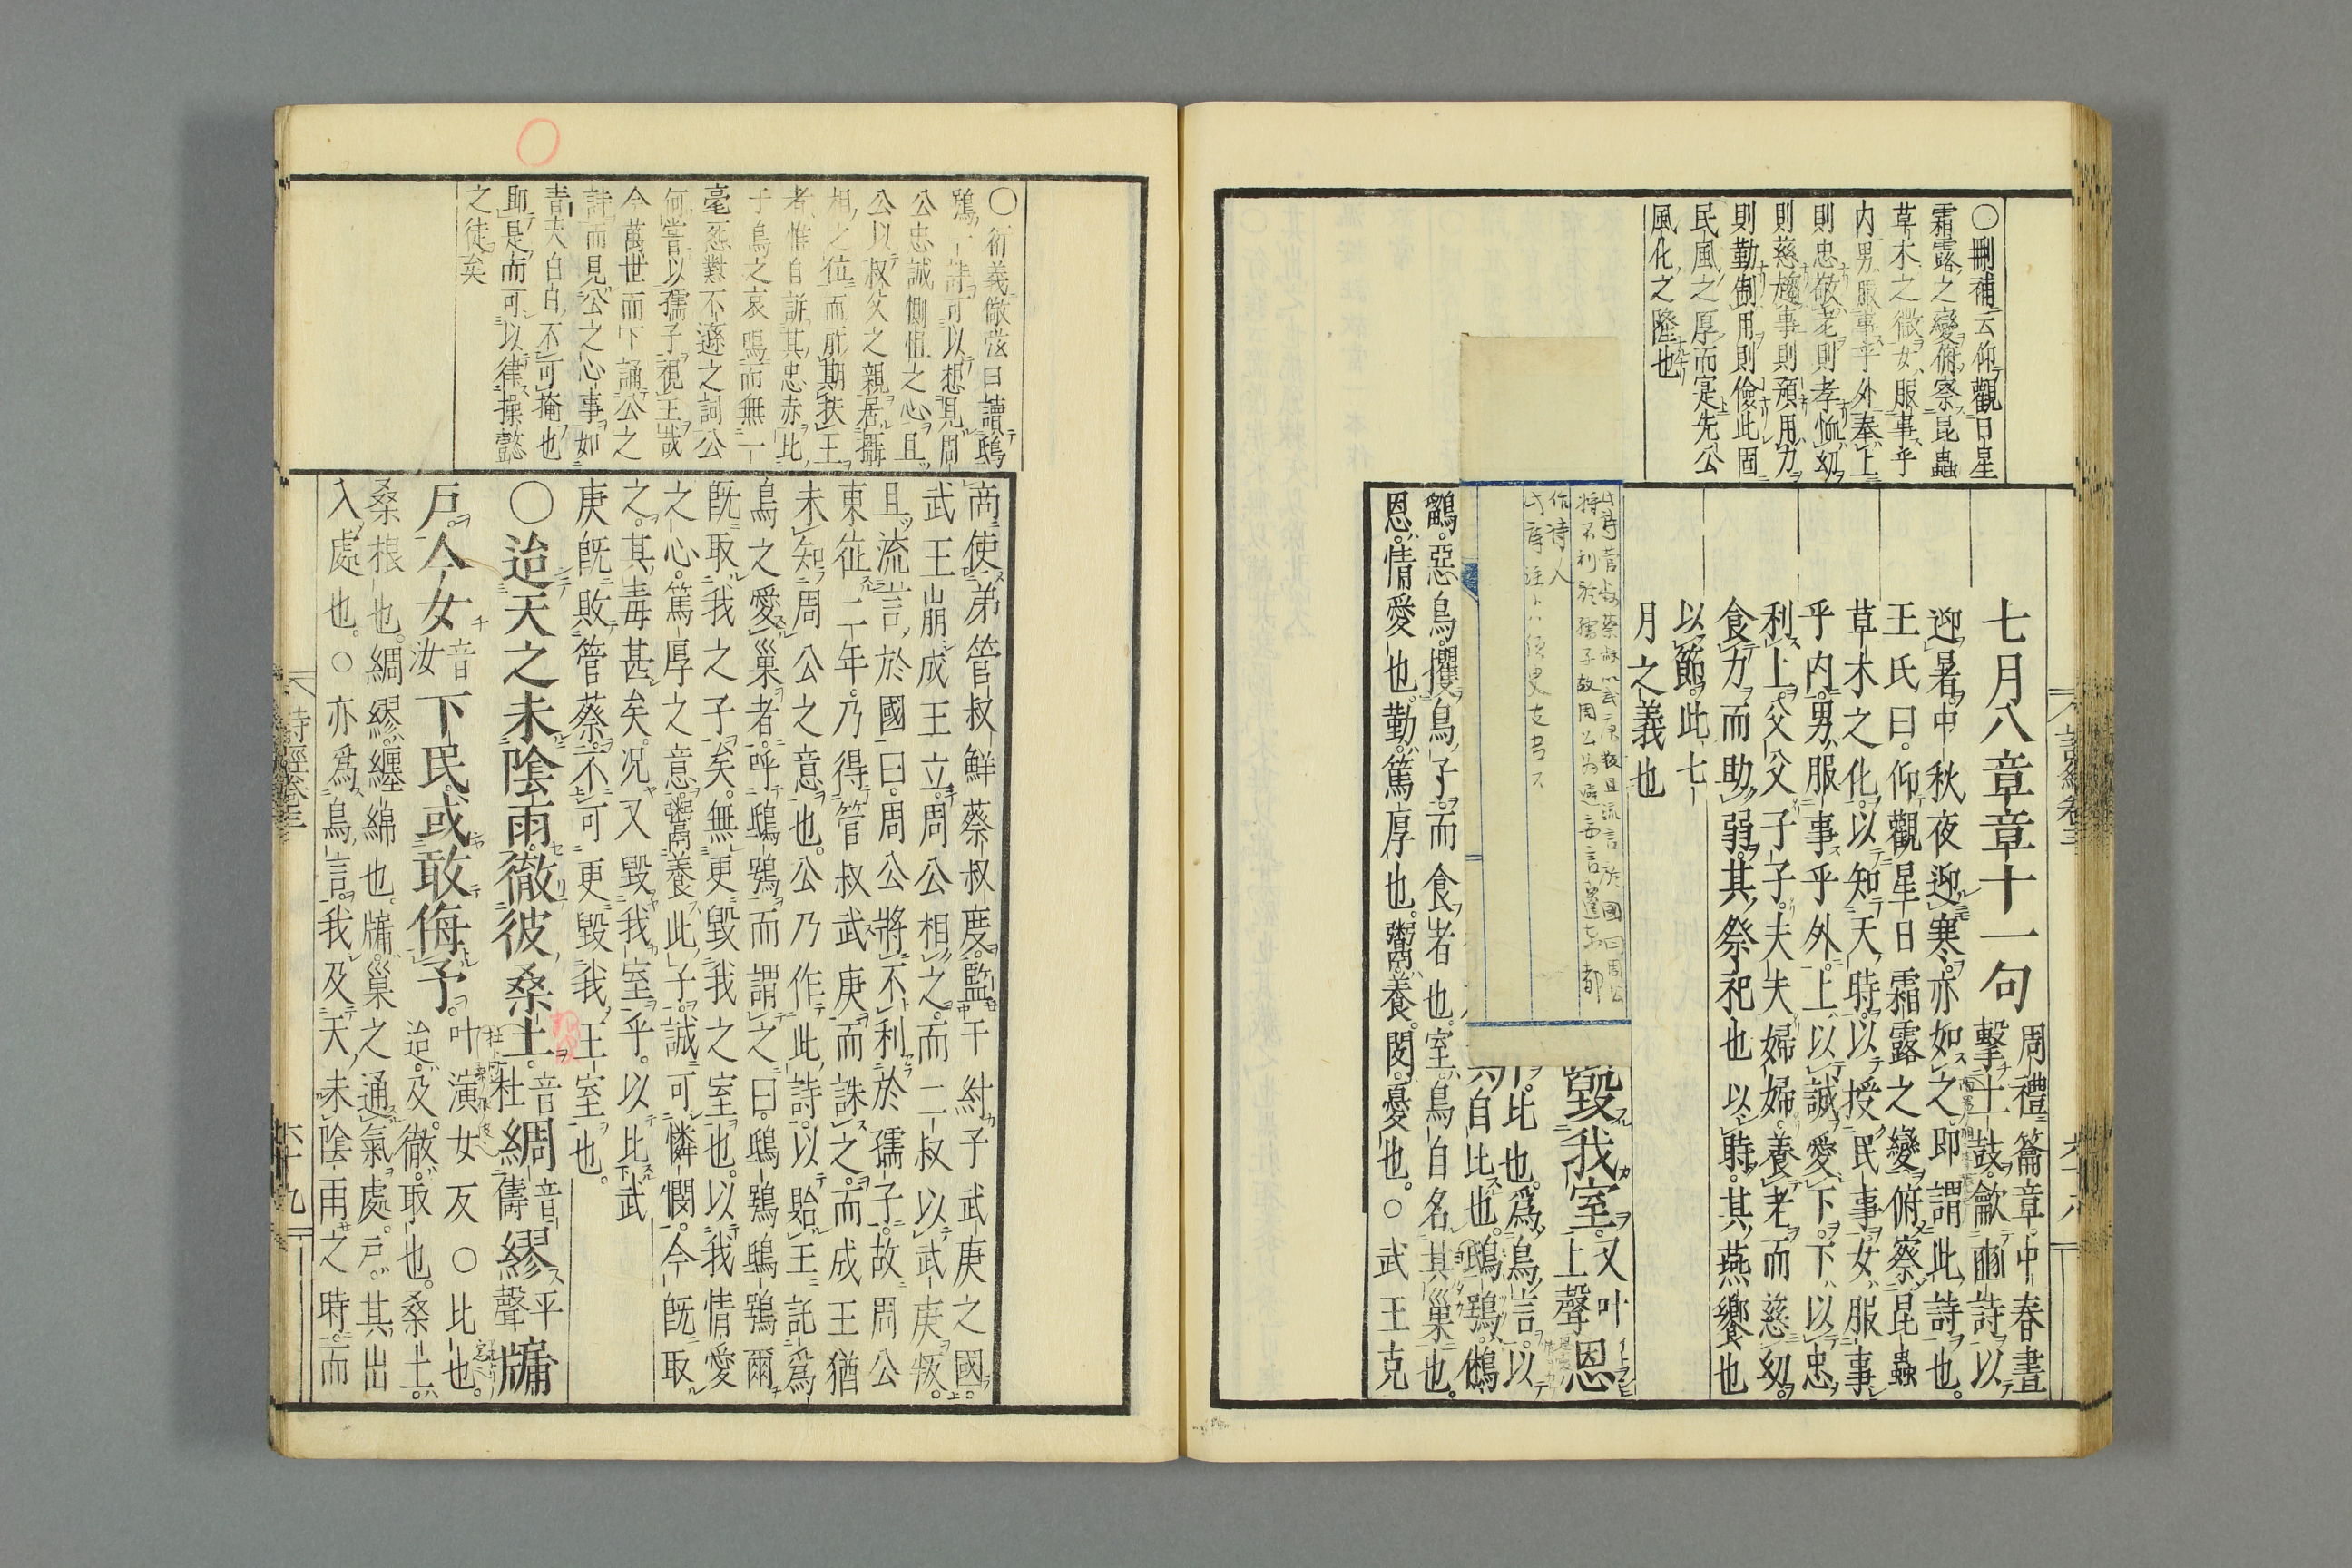 ○刪補云仰觀日星
霜露之變俯察昆蟲
草木之微女服事乎
内男服事乎外奉上
則忠敬老則孝恤幼
則慈趨事則預用力
則勤制用則儉此固
民風之厚而寔先公
風化之隆也
七月八章章十一句
周禮籥章中春晝
擊土鼓。龡豳詩以
迎暑。中秋夜迎寒。亦如之。即謂此詩也。
王氏曰。仰觀星日霜露之變。俯察昆蟲
草木之化。以知天時。以授民事。女服事
乎内。男服事乎外。上以誠愛下。下以忠
利上。父父子子。夫夫婦婦。養老而慈幼。
食力而助弱。其祭祀也以時。其燕饗也
以節。此七
月之義也
毀我室。又叶上聲恩
比也。爲鳥言。以
自比也。鴟鴞。鵂
鶹。惡鳥。攫鳥子而食者也。室。鳥自名其巢也。
恩。情愛也。勤。篤厚也。鬻。養。閔。憂也。○武王克
作詩人
詩經卷三
六十八
○衍義倣弦曰讀鴟
鴞一詩可以想見周
公忠誠惻怛之心且
公以叔父之親居攝
相之位而所期扶王
者惟自訴其忠赤比
于鳥之哀鳴而無一
毫怨懟不遜之詞公
何嘗以孺子視王哉
今萬世而下誦公之
詩而見公之心事如
青天白日不可掩也
即是而可以律操懿
之徒矣
商使弟管叔鮮蔡叔度。監于紂子武庚之國。
武王崩。成王立。周公相之。而二叔以武庚叛。
且流言於國曰。周公將不利於孺子。故周公
東征二年。乃得管叔武庚而誅之。而成王猶
未知周公之意也。公乃作此詩。以貽王。託爲
鳥之愛巢者。呼鴟鴞而謂之曰。鴟鴞鴟鴞爾
既取我之子矣。無更毀我之室也。以我情愛
之心。篤厚之意。鬻養此子。誠可憐憫。今既取
之。其毒甚矣。况又毀我室乎。以比武
庚既敗管蔡。不可更毀我王室也。
○迨天之未陰雨。徹彼桑土。音杜綢音儔繆平聲牖
戶。今女音汝下民。或敢侮予。叶演女反○比也。
迨。及。徹。取也。桑土。
桑根也。綢繆。纏綿也。牖。巢之通氣處。戶。其出
入處也。○亦爲鳥言。我及天未陰雨之時。而
詩經卷三
六十九